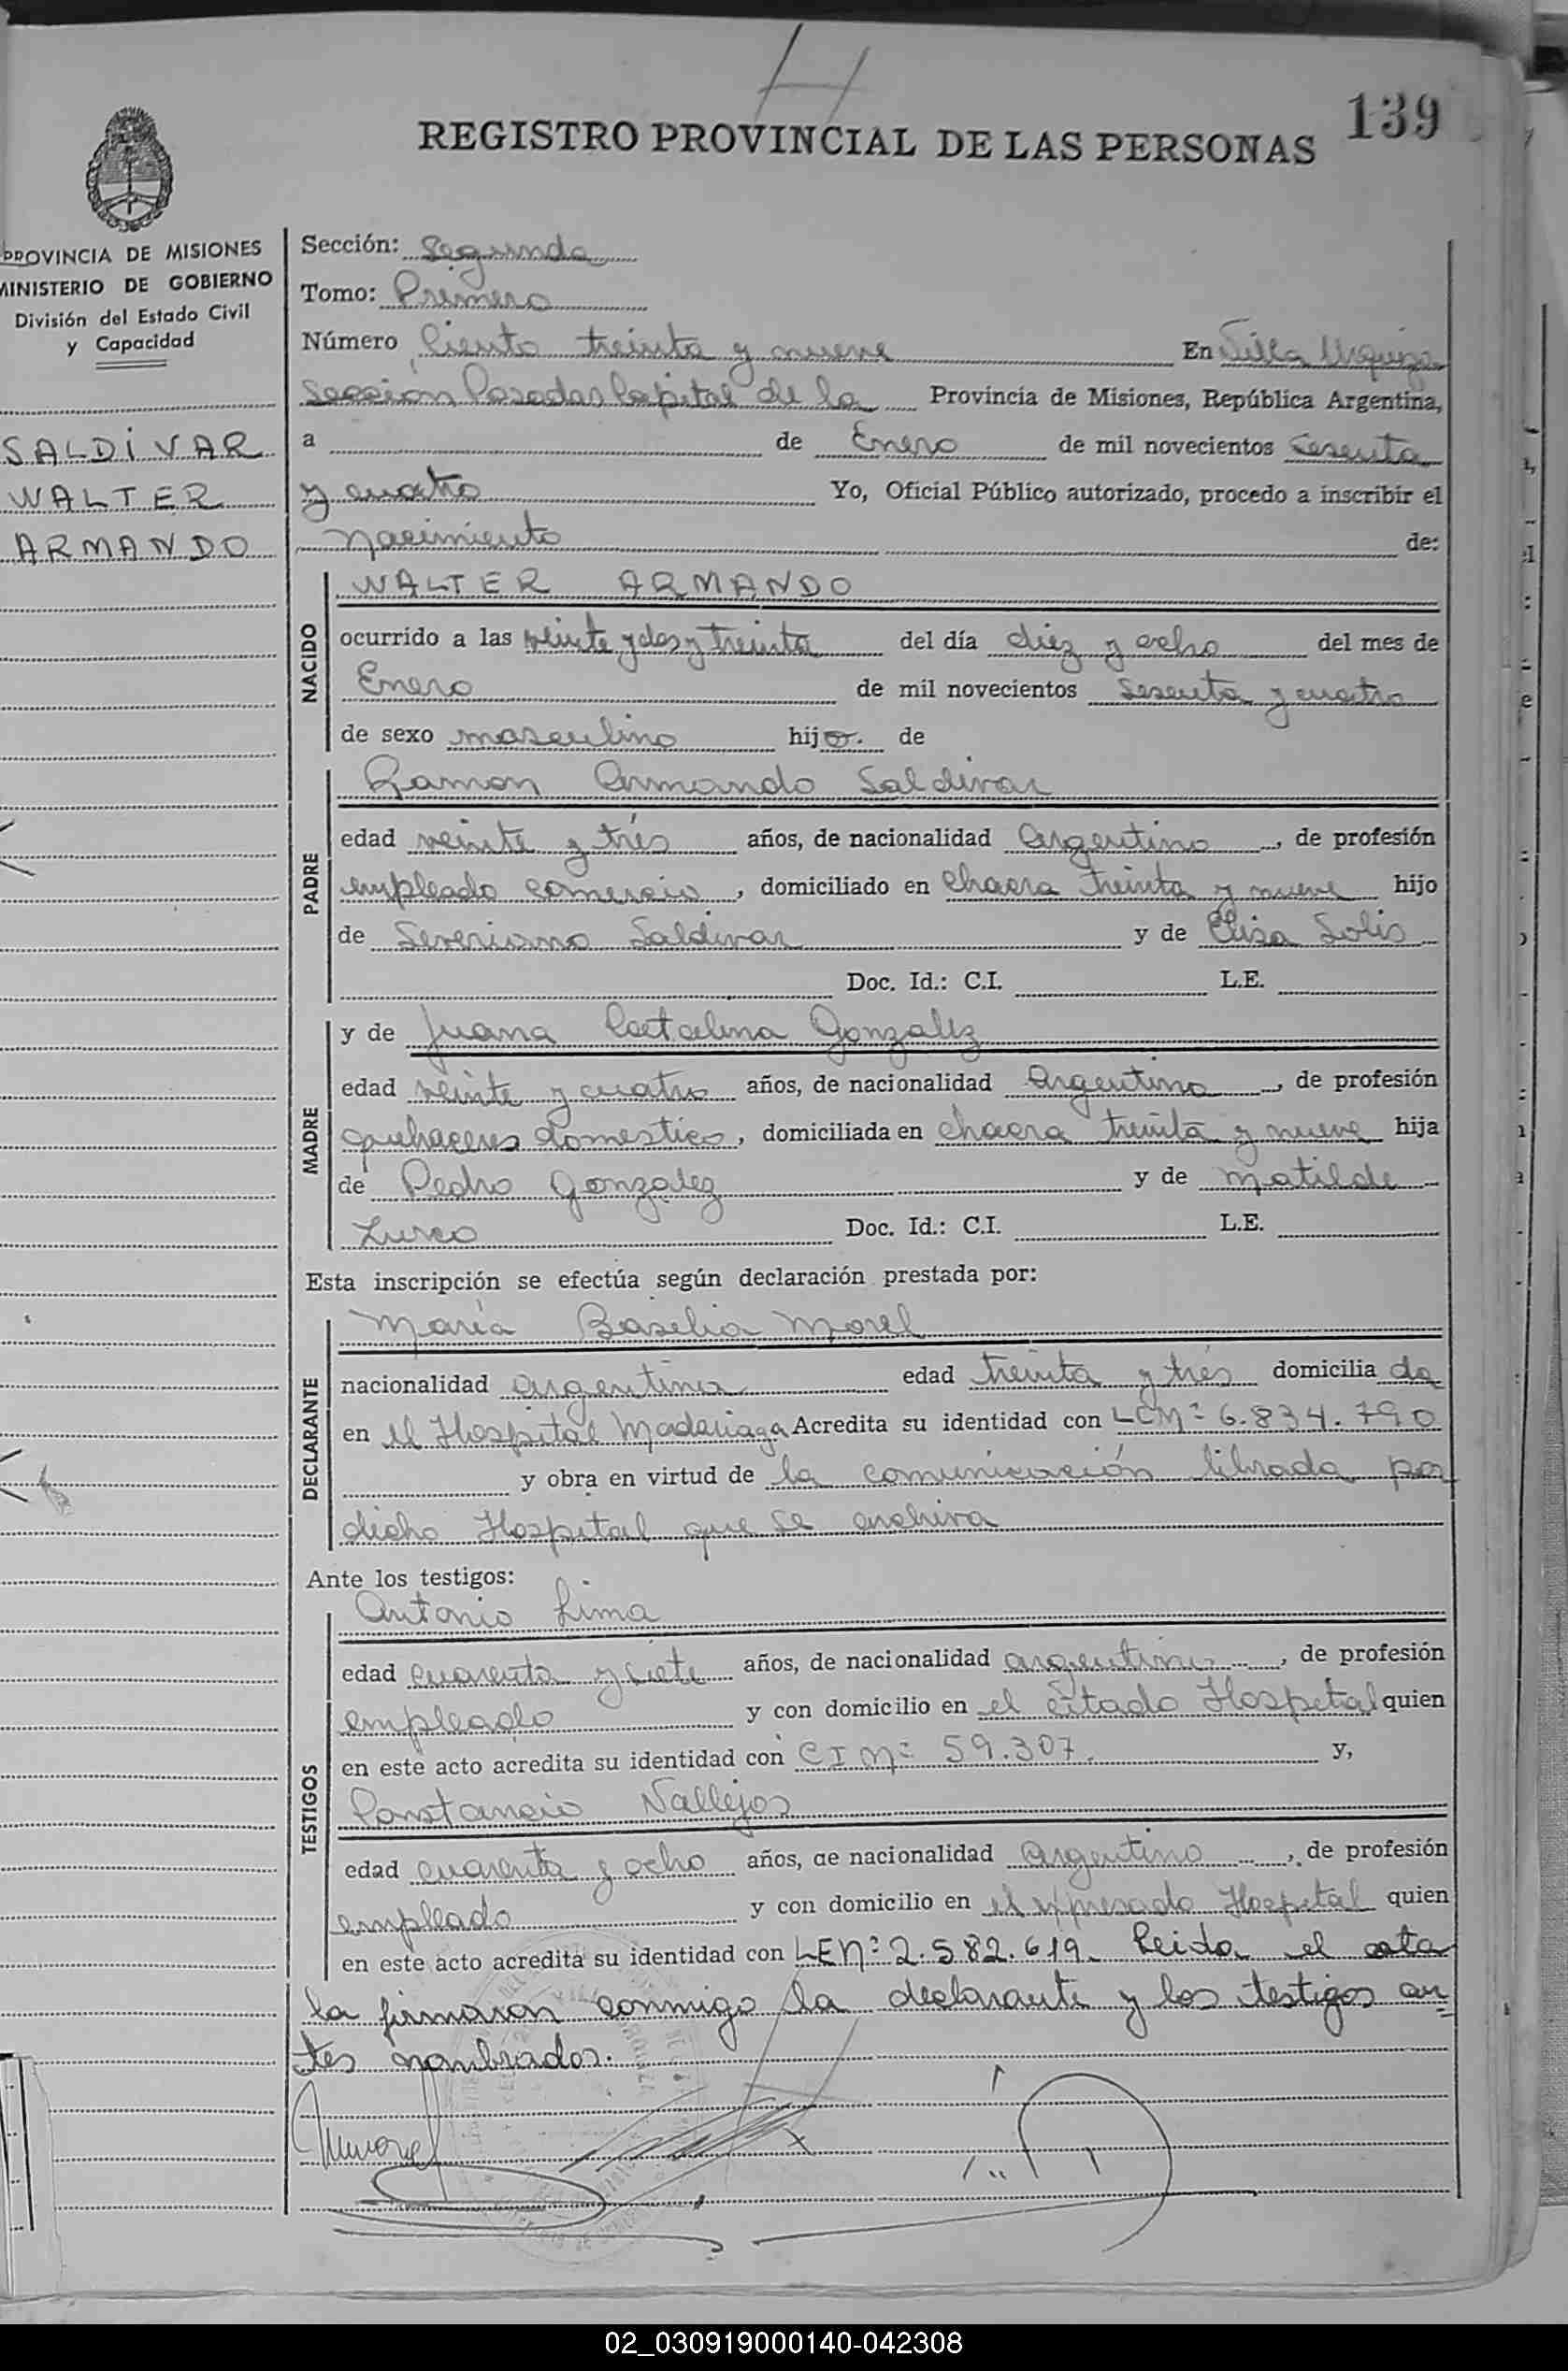 139
REGISTRO PROVINCIAL DE LAS PERSONAS
PROVINCIA DE MISIONES
MINISTERIO DE GOBIERNO
División del Estado Civil
y Capacidad
SALDÍVAR
WALTER
ARMANDO
Sección: Segunda
Tomo: Primero
Número Ciento treinta y nueve En Villa Urquiza
Sección Posadas Capital de la Provincia de Misiones, República Argentina,
a de Enero de mil novecientos sesenta
y cuatro Yo, Oficial Público autorizado, procedo a inscribir el
nacimiento de:
NACIDO
WALTER ARMANDO
ocurrido a las veinte y dos y treinta del día diez y ocho del mes de
Enero de mil novecientos sesenta y cuatro
de sexo masculino hijo. de
PADRE
Ramon Armando Saldivar
edad veinte y trés años, de nacionalidad Argentino, de profesión
empleado comercio, domiciliado en chacra treinta y nueve hijo
de Severiano Saldivar y de Elisa Solis
Doc. Id.: C.I. L.E.
MADRE
y de Juana Catalina Gonzalez
edad veinte y cuatro años, de nacionalidad Argentina, de profesión
quehaceres domestico, domiciliada en chacra treinta y nueve hija
de Pedro Gonzalez y de Matilde
Doc. Id.: C.I. L.E.
Esta inscripción se efectúa según declaración prestada por:
DECLARANTE
María Basilia Morel
nacionalidad argentina edad treinta y trés domicilia da
en el Hospital Madariaga Acredita su identidad con LCNº 6.834.790
y obra en virtud de la comunicación librada por
dicho Hospital que se archiva
Ante los testigos:
TESTIGOS
Antonio Lima
edad cuarenta y siete años, de nacionalidad argentino, de profesión
empleado y con domicilio en el citado Hospital quien
en este acto acredita su identidad con CI Nº 59.307. y,
Constancio Vallejos
edad cuarenta y ocho años, de nacionalidad argentino, de profesión
empleado y con domicilio en el expresado Hospital quien
en este acto acredita su identidad con LENº 2.582.619. Leida el acta
la firmaron conmigo la declarante y los testigos an
tes nombrados.
02_030919000140-042308